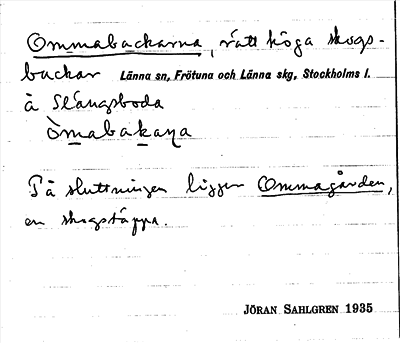 Ommabackarna, rätt höga skogs-
backar Länna sn, Frötuna och Länna skg, Stockholms l.
å Slängsboda
òmabakaṇa
På sluttningen ligger Ommagården,
en skogstäppa.
JÖRAN SAHLGREN 1935